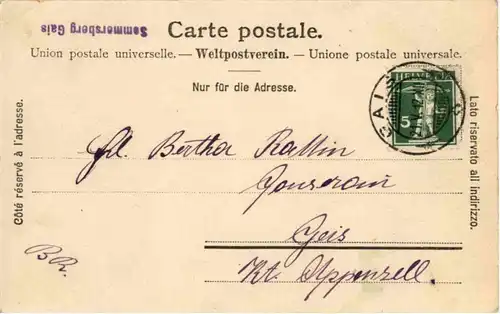 Sommersberg Gais
Carte postale.
Union postale universelle. — Weltpostverein. — Unione postale universale.
Nur für die Adresse.
Côté réservé à l'adresse.
Lato riservato all indirizzo.
HELVETIA
5
GAIS
Frl. Bertha
Gais
Kt. Appenzell.
BR.